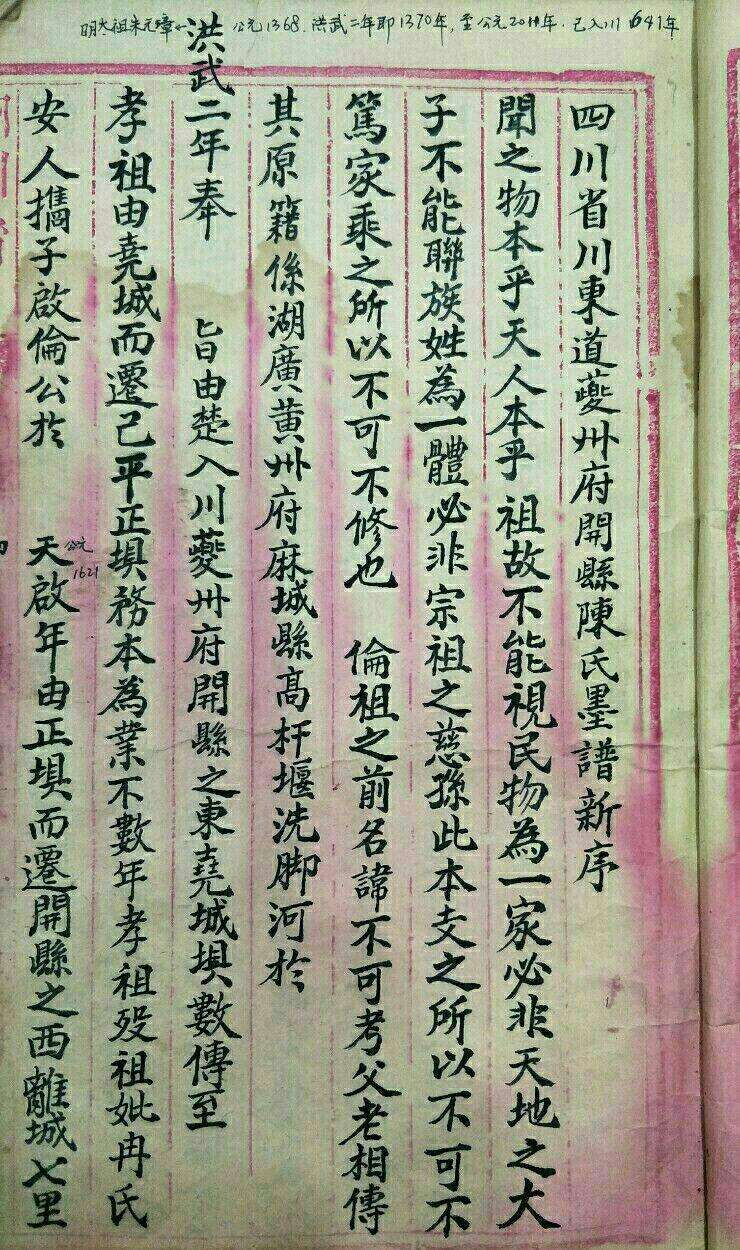 明太祖朱元璋 公元1368.洪武二年即1370年,至公元2011年.已入川641年
四川省川東道夔州府開縣陳氏墨譜新序
聞之物本乎天人本乎 祖故不能視民物為一家必非天地之大
子不能聯族姓為一體必非宗祖之慈孫此本支之所以不可不
篤家乘之所以不可不修也 倫祖之前名諱不可考父老相傳
其原籍係湖廣黃州府麻城縣高杆堰洗脚河於
洪武二年奉 旨由楚入川夔州府開縣之東堯城垻數傳至
孝祖由堯城而遷己平正垻務本為業不數年孝祖歿祖妣冉氏
安人攜子啟倫公於 天啟年由正垻而遷開縣之西離城七里
公元
1621